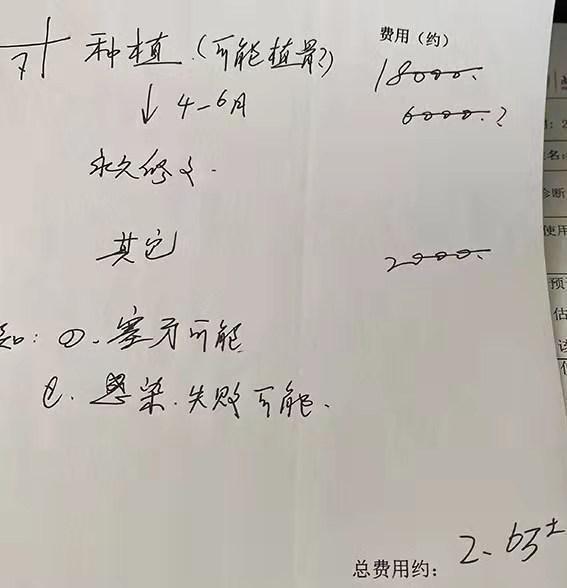 费用(约)
7 种植.(可能植骨?) 18000.
↓ 4-6月 6000.?
永久修复.
其它 2000.
知: ①.塞牙可能
②.感染.失败可能.
总费用约: 2.6万±